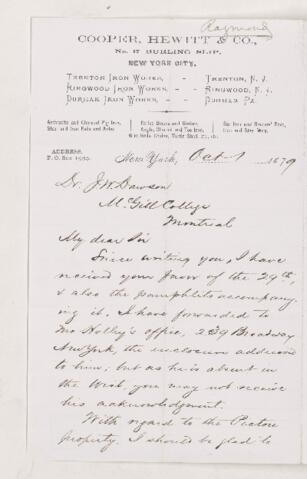 Raymond
COOPER, HEWITT & CO.,
No. 17 BURLING SLIP,
NEW YORK CITY.
TRENTON IRON WORKS, - - TRENTON, N. J.
RINGWOOD IRON WORKS, - - RINGWOOD, N. J.
DURHAM IRON WORKS, - - DURHAM PA.
ADDRESS,
P. O. Box
New York, Oct 1 1879
Dr. J W Dawson
McGill College
Montreal
My dear Sir
Since writing you, I have
received your favor of the 29th,
& also the pamphlets accompany
ing it. I have forwarded to
Mr Holley's office, 239 Broadway
New York, the enclosure addressed
to him; but as he is absent in
the West, you may not receive
his acknowledgment.
With regard to the Pictou
property, I should be glad to